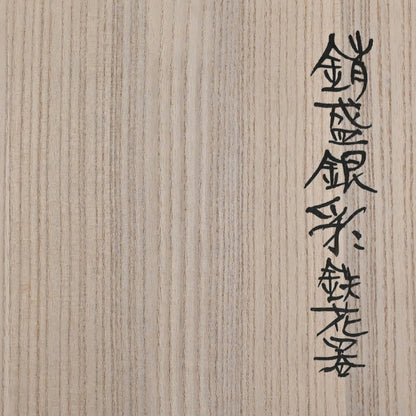 銷盛銀彩鉄花器